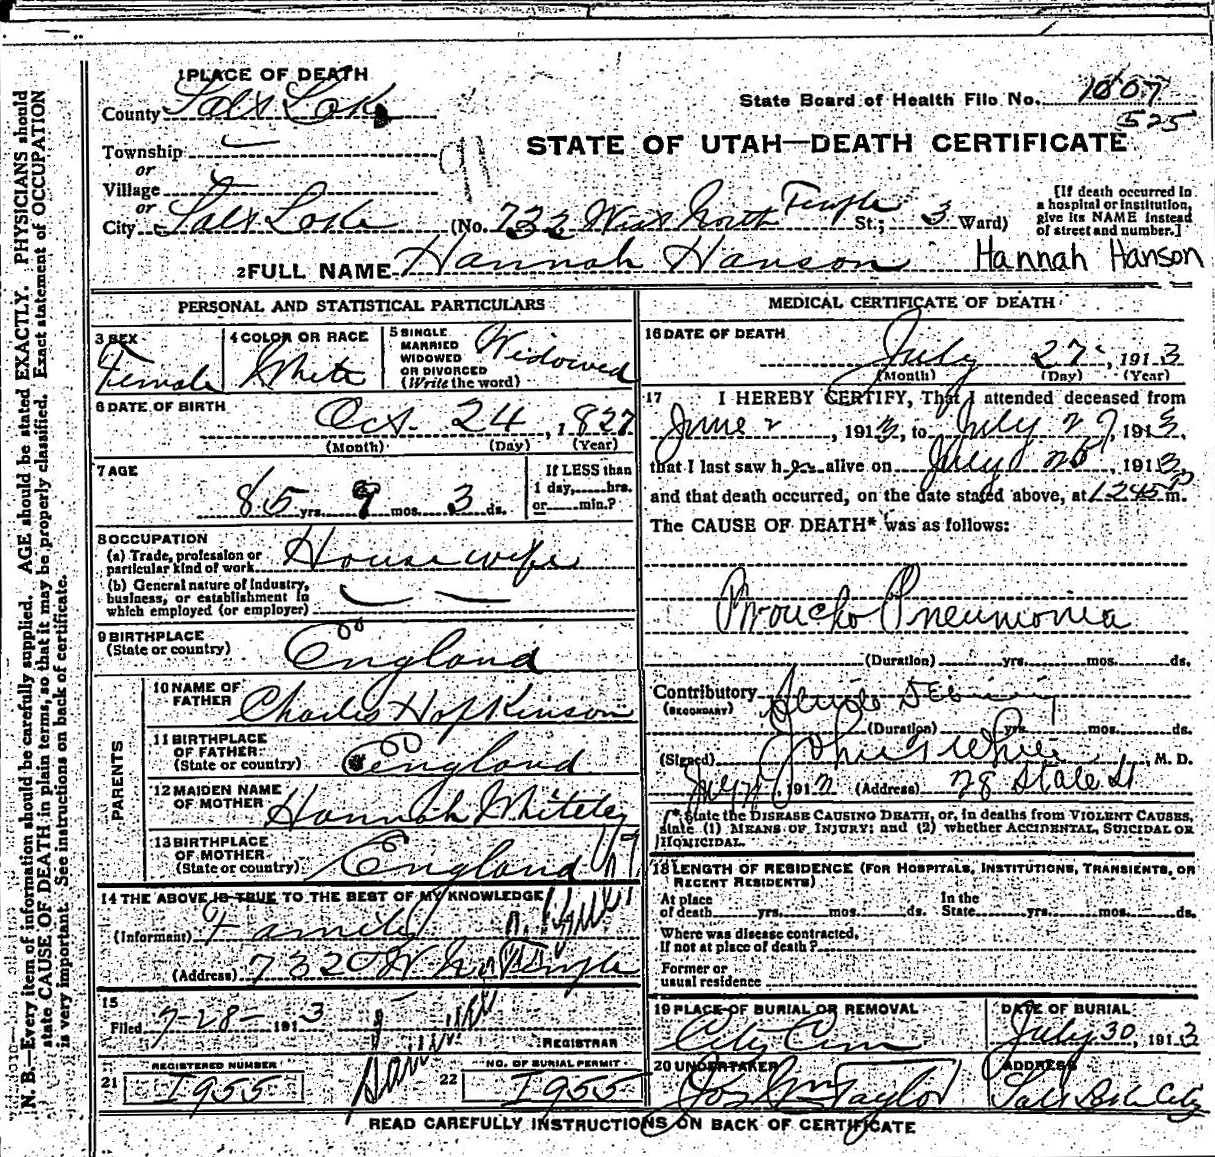 1 PLACE OF DEATH
County Salt Lake
State Board of Health File No. 1007
525
STATE OF UTAH—DEATH CERTIFICATE
Township
or
Village
or
City Salt Lake (No. 732 West North Temple St.; 3 Ward)
[If death occurred in a hospital or institution, give its NAME instead of street and number.]
91
2 FULL NAME Hannah Hanson Hannah Hanson
PERSONAL AND STATISTICAL PARTICULARS
3 SEX Female
4 COLOR OR RACE White
5 SINGLE MARRIED WIDOWED OR DIVORCED (Write the word) Widowed
6 DATE OF BIRTH Oct. 24, 1827
(Month) (Day) (Year)
7 AGE 85 yrs. 9 mos. 3 ds.
If LESS than 1 day, hrs. or min.?
8 OCCUPATION
(a) Trade, profession or particular kind of work Housewife
(b) General nature of Industry, business, or establishment in which employed (or employer)
9 BIRTHPLACE (State or country) England
PARENTS
10 NAME OF FATHER Charles Hopkinson
11 BIRTHPLACE OF FATHER (State or country) England
12 MAIDEN NAME OF MOTHER Hannah Whiteley
13 BIRTHPLACE OF MOTHER (State or country) England
14 THE ABOVE IS TRUE TO THE BEST OF MY KNOWLEDGE
(Informant) Family
(Address) 732 W. No. Temple
15
Filed 7-28- 1913
REGISTRAR
REGISTERED NUMBER
21 1955
NO. OF BURIAL PERMIT
22 1955
MEDICAL CERTIFICATE OF DEATH
16 DATE OF DEATH July 27, 1913
(Month) (Day) (Year)
17 I HEREBY CERTIFY, That I attended deceased from
June 2, 1913, to July 27, 1913,
that I last saw her alive on July 26, 1913,
and that death occurred, on the date stated above, at 1245 P m.
The CAUSE OF DEATH* was as follows:
Broncho Pneumonia
(Duration) yrs. mos. ds.
Contributory Senile Debility
(SECONDARY)
(Duration) yrs. mos. ds.
(Signed) John , M. D.
July , 191 (Address) 28 State St
[* State the DISEASE CAUSING DEATH, or, in deaths from VIOLENT CAUSES, state (1) MEANS OF INJURY; and (2) whether ACCIDENTAL, SUICIDAL OR HOMICIDAL.
18 LENGTH OF RESIDENCE (FOR HOSPITALS, INSTITUTIONS, TRANSIENTS, OR RECENT RESIDENTS)
At place of death yrs. mos. ds. In the State yrs. mos. ds.
Where was disease contracted, If not at place of death?
Former or usual residence
19 PLACE OF BURIAL OR REMOVAL City Cem
DATE OF BURIAL July 30, 1913
20 UNDERTAKER Jos Wm Taylor
ADDRESS Salt Lake City
READ CAREFULLY INSTRUCTIONS ON BACK OF CERTIFICATE
N. B.—Every item of information should be carefully supplied. AGE should be stated EXACTLY. PHYSICIANS should
state CAUSE OF DEATH in plain terms, so that it may be properly classified. Exact statement of OCCUPATION
is very important. See instructions on back of certificate.